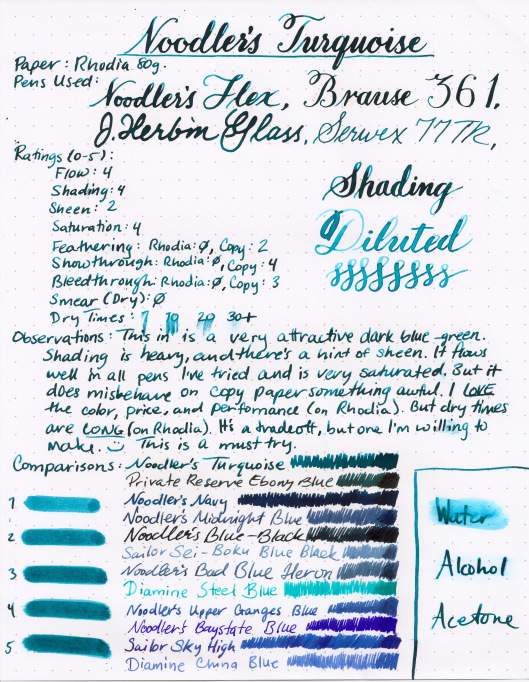 Noodler's Turquoise
Paper: Rhodia 80g.
Pens Used:
Noodler's Flex, Brause 361,
J. Herbin Glass, Serwex 77TR,
Ratings (0-5):
Flow: 4
Shading: 4
Sheen: 2
Saturation: 4
Feathering: Rhodia: Ø, Copy: 2
Showthrough: Rhodia: Ø, Copy: 4
Bleedthrough: Rhodia: Ø, Copy: 3
Smear (Dry): Ø
Dry Times: 1 10 20 30+
Shading
Diluted
Observations: This in is a very attractive dark blue-green.
Shading is heavy, and there's a hint of sheen. It flows
well in all pens I've tried and is very saturated. But it
does misbehave on copy paper something awful. I LOVE
the color, price, and performance (on Rhodia). But dry times
are LONG (on Rhodia). It's a tradeoff, but one I'm willing to
make. :) This is a must try.
Comparisons: Noodler's Turquoise
Private Reserve Ebony Blue
Noodler's Navy
Noodler's Midnight Blue
Noodler's Blue-Black
Sailor Sei-Boku Blue Black
Noodler's Bad Blue Heron
Diamine Steel Blue
Noodler's Upper Ganges Blue
Noodler's Baystate Blue
Sailor Sky High
Diamine China Blue
1
2
3
4
5
Water
Alcohol
Acetone